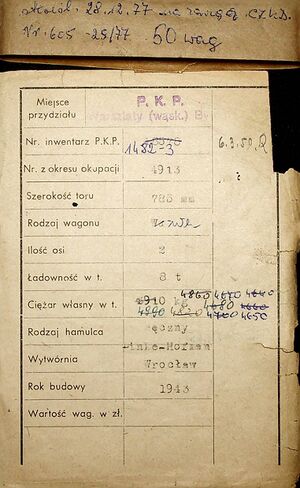 28.12.77 na
Nr. 605-25/77. 50 wag
Miejsce przydziału P. K. P.
Warsztaty (wąsk.) By
Nr. inwentarz P.K.P. 1482-3 6.3.50.
Nr. z okresu okupacji 4913
Szerokość toru 785 mm
Rodzaj wagonu
Ilość osi 2
Ładowność w t. 8 t
Ciężar własny w t. 4910 kg 4860 4640
4680 4660
4820 4700 4650
Rodzaj hamulca ręczny
Wytwórnia Linke-Hofman
Wrocław
Rok budowy 1943
Wartość wag. w zł.